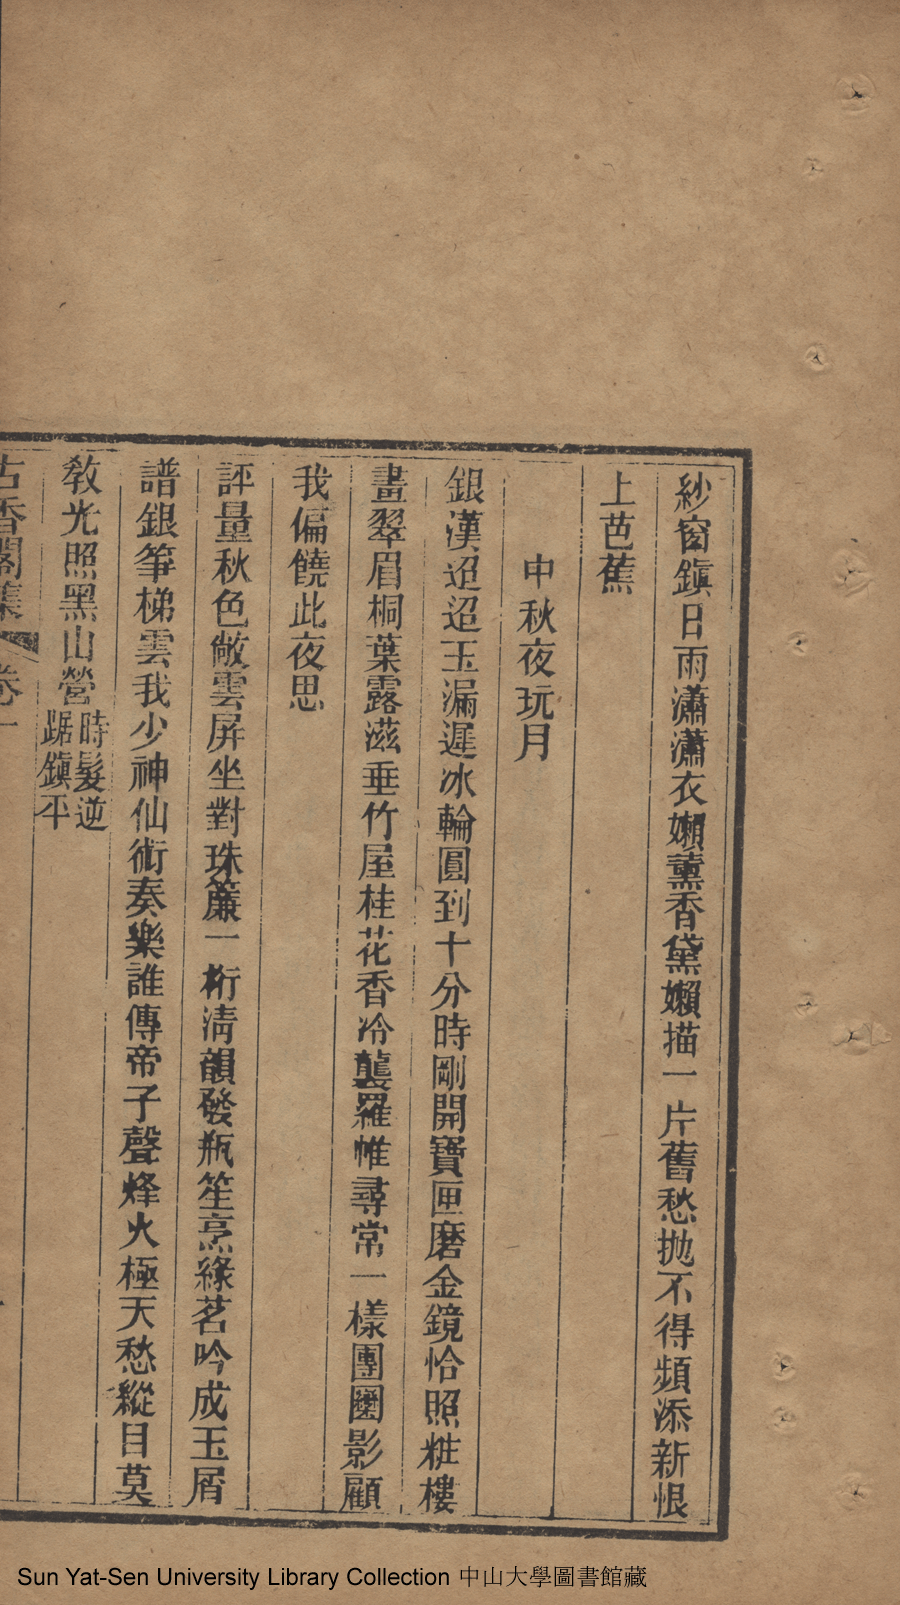 紗窗鎭日雨瀟瀟衣嬾薰香黛嬾描一片舊愁拋不得頻添新恨
上芭蕉
中秋夜玩月
銀漢迢迢玉漏遲冰輪圓到十分時剛開寶匣磨金鏡恰照粧樓
畫翠眉桐葉露滋垂竹屋桂花香冷襲羅帷尋常一樣團圞影顧
我偏饒此夜思
評量秋色敞雲屏坐對珠簾一桁淸韻發瓶笙烹綠茗吟成玉屑
譜銀箏梯雲我少神仙術奏樂誰傳帝子聲烽火極天愁縱目莫
敎光照黑山營時髮逆踞鎭平
古香閣集 卷一
Sun Yat-Sen University Library Collection 中山大學圖書館藏